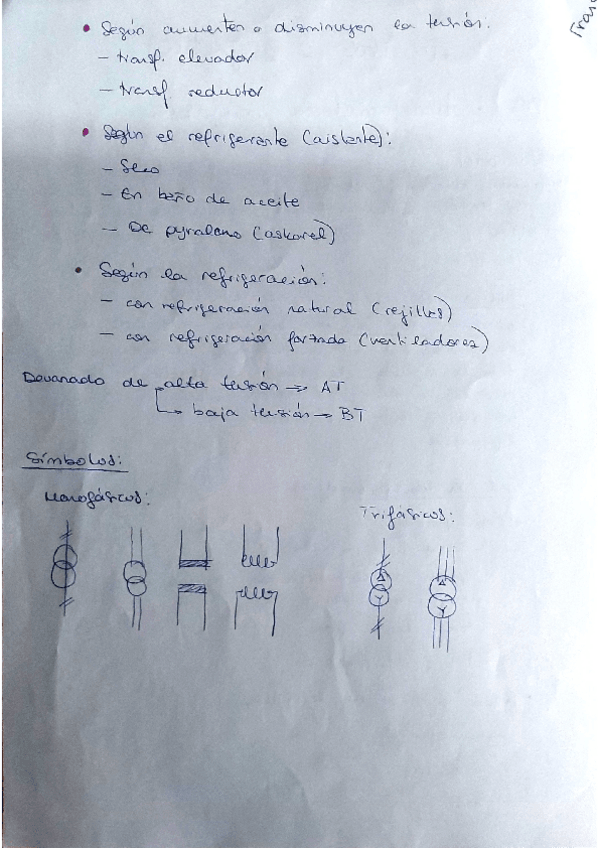 Tran
• Según aumenten o disminuyen la tensión.
- transf. elevador
- transf. reductor
• Según el refrigerante (aislante):
- Seco
- En baño de aceite
- De pyraleno (askarel)
• Según la refrigeración:
- con refrigeración natural (rejillas)
- con refrigeración forzada (ventiladores)
Devanado de alta tensión → AT
↳ baja tensión → BT
Símbolos:
Monofásicos:
Trifásicos: